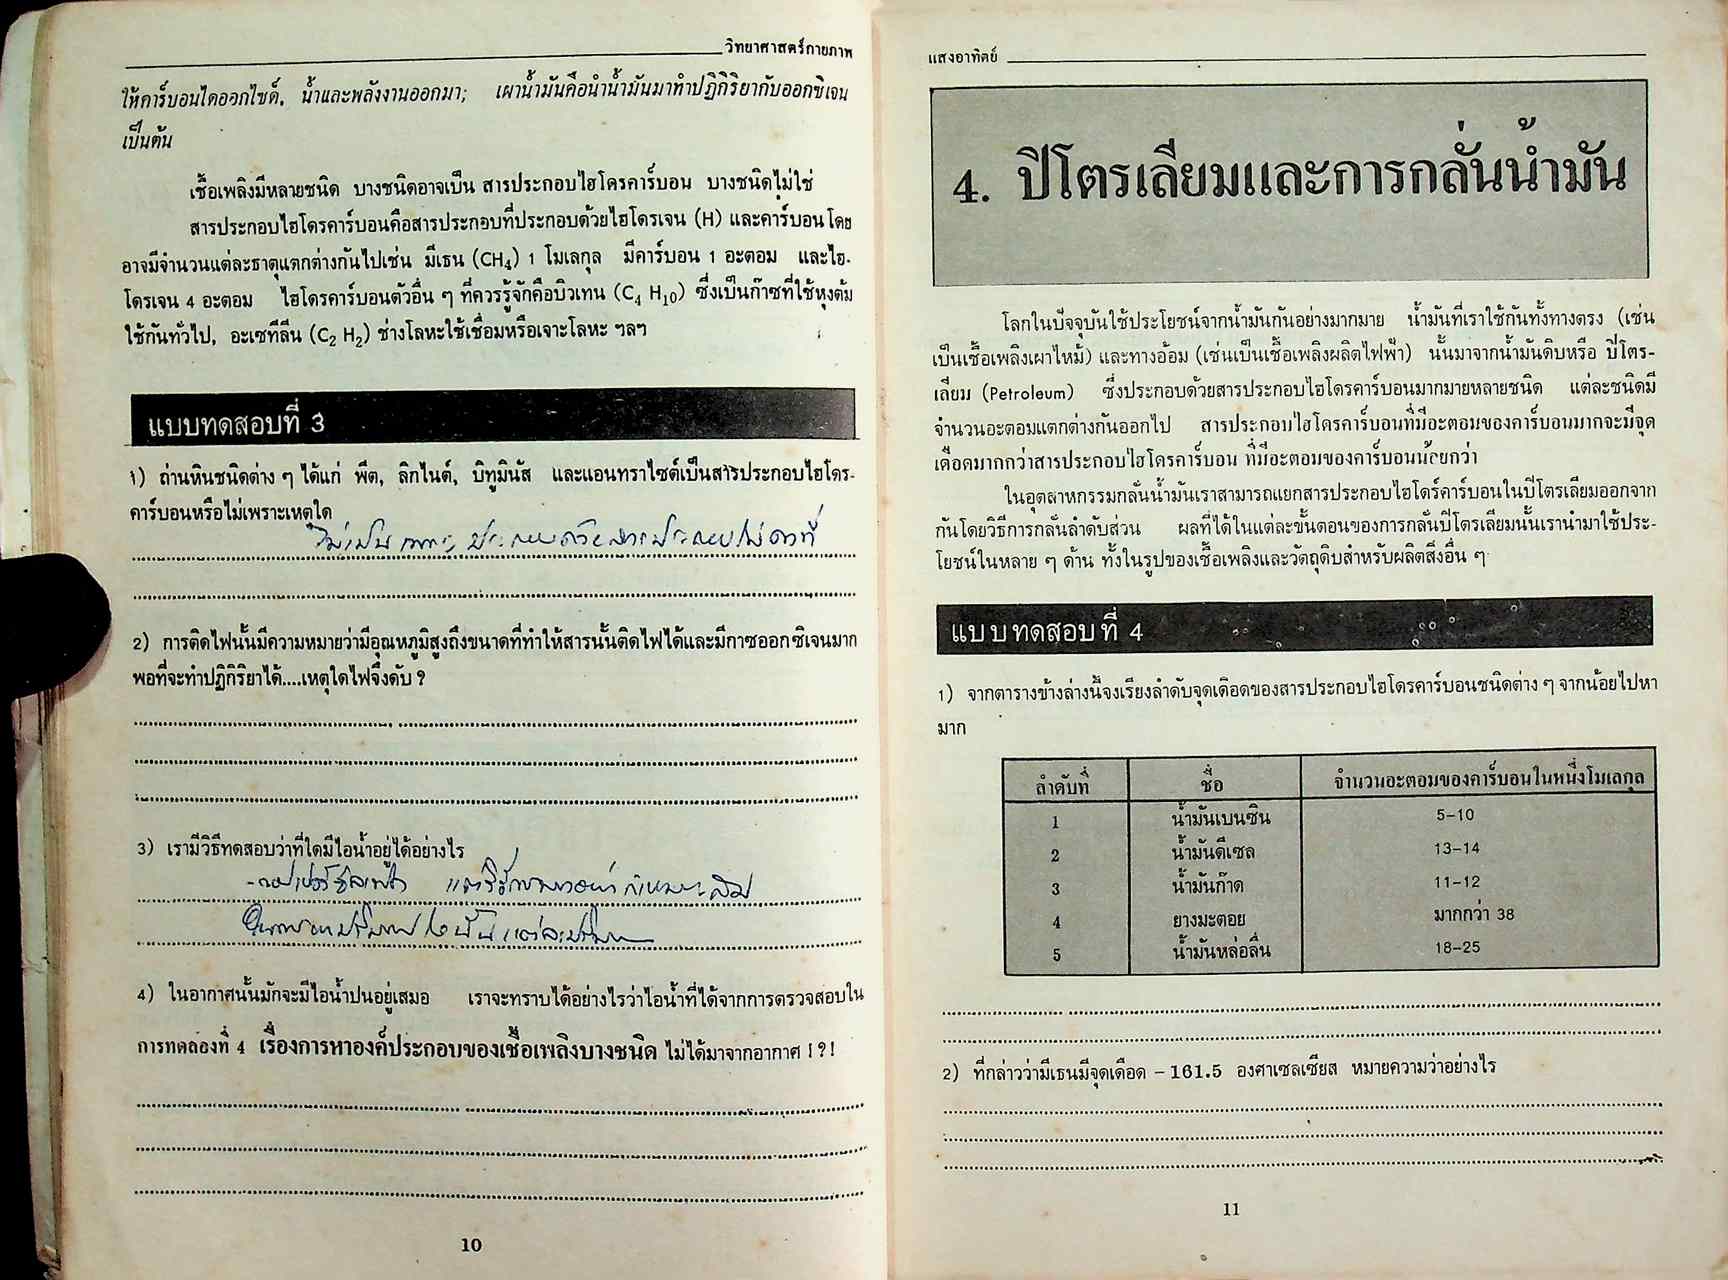 วิทยาศาสตร์กายภาพ
ให้คาร์บอนไดออกไซด์, น้ำและพลังงานออกมา; เผาน้ำมันคือนำน้ำมันมาทำปฏิกิริยากับออกซิเจน
เป็นต้น
เชื้อเพลิงมีหลายชนิด บางชนิดอาจเป็น สารประกอบไฮโดรคาร์บอน บางชนิดไม่ใช่
สารประกอบไฮโดรคาร์บอนคือสารประกอบที่ประกอบด้วยไฮโดรเจน (H) และคาร์บอน โดย
อาจมีจำนวนแต่ละธาตุแตกต่างกันไปเช่น มีเธน (CH₄) 1 โมเลกุล มีคาร์บอน 1 อะตอม และไฮ-
โดรเจน 4 อะตอม ไฮโดรคาร์บอนตัวอื่น ๆ ที่ควรรู้จักคือบิวเทน (C₄ H₁₀) ซึ่งเป็นก๊าซที่ใช้หุงต้ม
ใช้กันทั่วไป, อะเซทีลีน (C₂ H₂) ช่างโลหะใช้เชื่อมหรือเจาะโลหะ ฯลฯ
แบบทดสอบที่ 3
1) ถ่านหินชนิดต่าง ๆ ได้แก่ พีต, ลิกไนต์, บิทูมินัส และแอนทราไซต์เป็นสารประกอบไฮโดร-
คาร์บอนหรือไม่เพราะเหตุใด
ไม่เป็น เพราะ ประกอบด้วยสารประกอบไม่
2) การติดไฟนั้นมีความหมายว่ามีอุณหภูมิสูงถึงขนาดที่ทำให้สารนั้นติดไฟได้และมีกาซออกซิเจนมาก
พอที่จะทำปฏิกิริยาได้....เหตุใดไฟจึงดับ ?
3) เรามีวิธีทดสอบว่าที่ใดมีไอน้ำอยู่ได้อย่างไร
4) ในอากาศนั้นมักจะมีไอน้ำปนอยู่เสมอ เราจะทราบได้อย่างไรว่าไอน้ำที่ได้จากการตรวจสอบใน
การทดลองที่ 4 เรื่องการหาองค์ประกอบของเชื้อเพลิงบางชนิด ไม่ได้มาจากอากาศ !?!
10
แสงอาทิตย์
4. ปิโตรเลียมและการกลั่นน้ำมัน
โลกในปัจจุบันใช้ประโยชน์จากน้ำมันกันอย่างมากมาย น้ำมันที่เราใช้กันทั้งทางตรง (เช่น
เป็นเชื้อเพลิงเผาไหม้) และทางอ้อม (เช่นเป็นเชื้อเพลิงผลิตไฟฟ้า) นั้นมาจากน้ำมันดิบหรือ ปิโตร-
เลียม (Petroleum) ซึ่งประกอบด้วยสารประกอบไฮโดรคาร์บอนมากมายหลายชนิด แต่ละชนิดมี
จำนวนอะตอมแตกต่างกันออกไป สารประกอบไฮโดรคาร์บอนที่มีอะตอมของคาร์บอนมากจะมีจุด
เดือดมากกว่าสารประกอบไฮโดรคาร์บอน ที่มีอะตอมของคาร์บอนน้อยกว่า
ในอุตสาหกรรมกลั่นน้ำมันเราสามารถแยกสารประกอบไฮโดร์คาร์บอนในปิโตรเลียมออกจาก
กันโดยวิธีการกลั่นลำดับส่วน ผลที่ได้ในแต่ละขั้นตอนของการกลั่นปิโตรเลียมนั้นเรานำมาใช้ประ-
โยชน์ในหลาย ๆ ด้าน ทั้งในรูปของเชื้อเพลิงและวัตถุดิบสำหรับผลิตสิ่งอื่น ๆ
แบบทดสอบที่ 4
1) จากตารางข้างล่างนี้จงเรียงลำดับจุดเดือดของสารประกอบไฮโดรคาร์บอนชนิดต่าง ๆ จากน้อยไปหา
มาก
ลำดับที่ ชื่อ จำนวนอะตอมของคาร์บอนในหนึ่งโมเลกุล
1 น้ำมันเบนซิน 5-10
2 น้ำมันดีเซล 13-14
3 น้ำมันก๊าด 11-12
4 ยางมะตอย มากกว่า 38
5 น้ำมันหล่อลื่น 18-25
2) ที่กล่าวว่ามีเธนมีจุดเดือด – 161.5 องศาเซลเซียส หมายความว่าอย่างไร
11